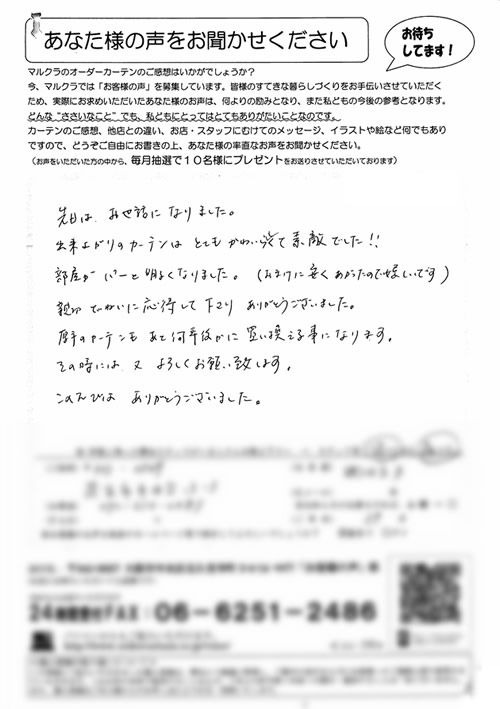 あなた様の声をお聞かせください
お待ち
してます!
マルクラのオーダーカーテンのご感想はいかがでしょうか?
今、マルクラでは「お客様の声」を募集しています。皆様のすてきな暮らしづくりをお手伝いさせていただく
ため、実際にお求めいただいたあなた様のお声は、何よりの励みとなり、また私どもの今後の参考となります。
どんな“ささいなこと”でも、私どもにとってはとてもありがたいことなのです。
カーテンのご感想、他店との違い、お店・スタッフにむけてのメッセージ、イラストや絵など何でもあり
ですので、どうぞご自由にお書きの上、あなた様の率直なお声をお聞かせください。
(お声をいただいた方の中から、毎月抽選で10名様にプレゼントをお送りさせていただいております)
先日は、お世話になりました。
出来上がりのカーテンは とてもかわいくて素敵でした!!
部屋が パーと明るくなりました。(おまけに安くあがったので嬉しいです)
親切 ていねいに応待して下さり ありがとうございました。
厚手のカーテンも あと何年後かに 買い換える事になります。
その時には 又 よろしくお願い致します。
このたびは ありがとうございました。
24時間受付FAX:06-6251-2486